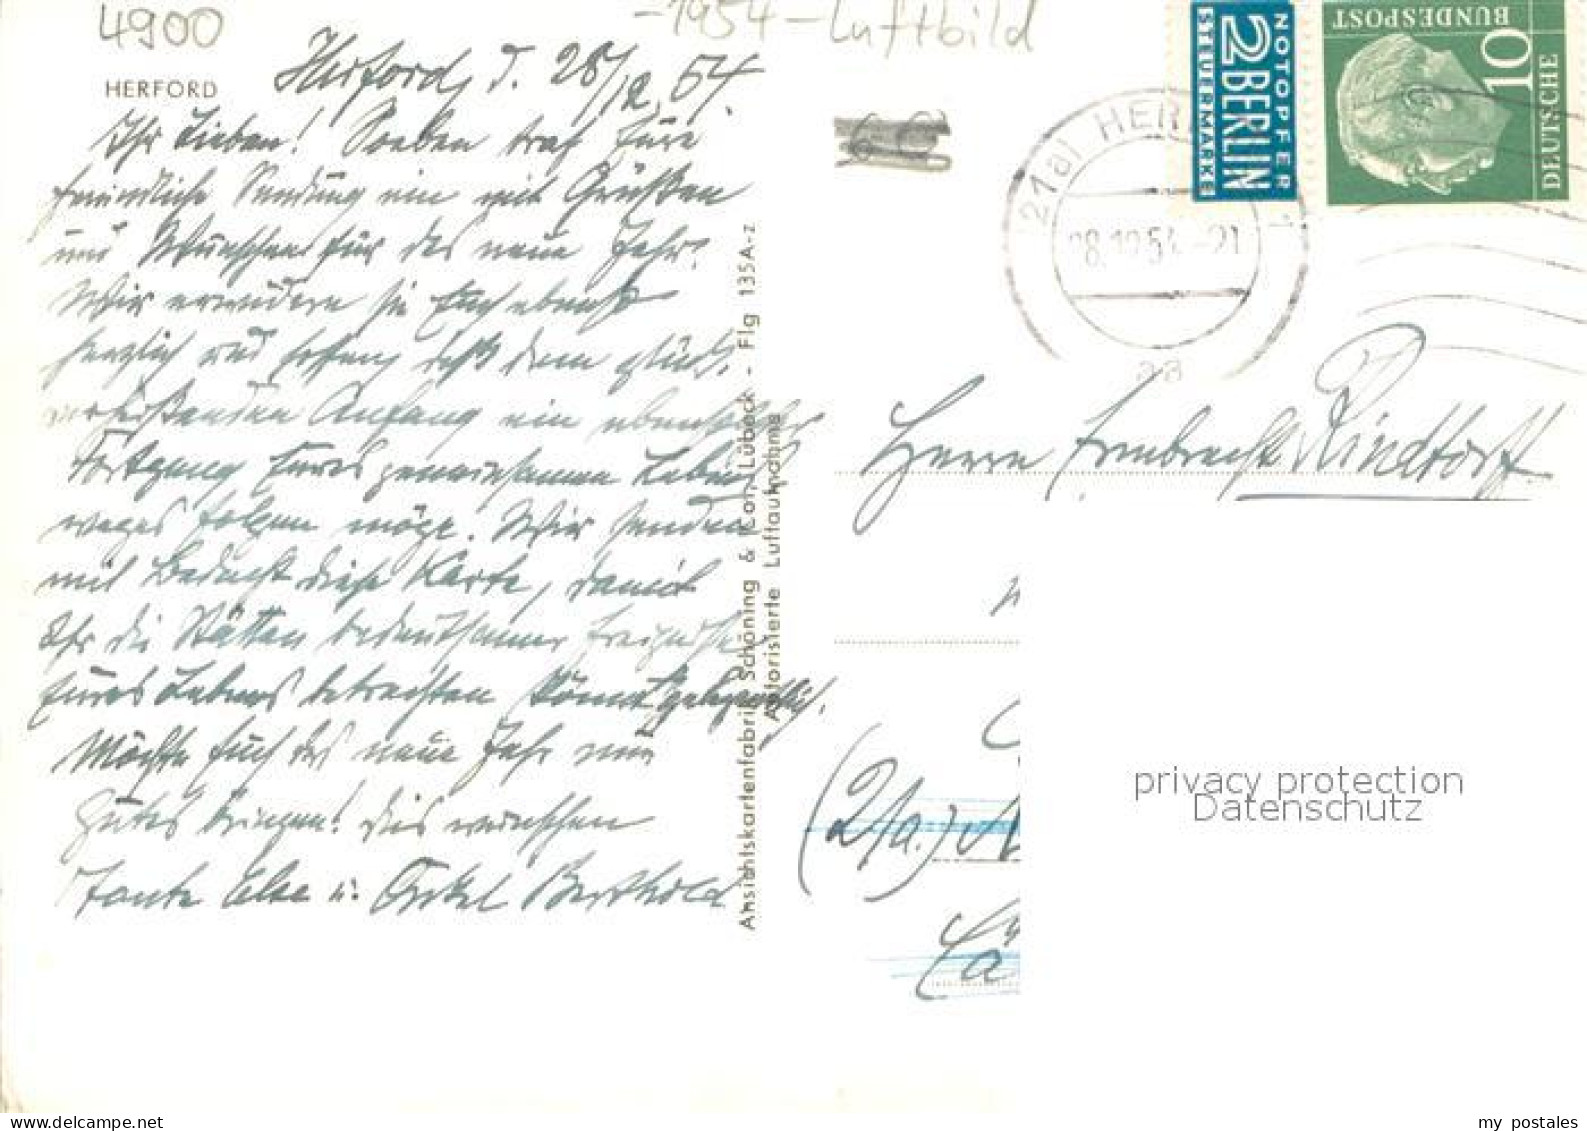 4900
-1954-Luftbild
HERFORD
Herford, d. 28/12. 54.
Ihr Lieben! Soeben traf Eure
freundliche Sendung ein mit Grüßen
und Wünschen für das neue Jahr.
Wir erwidern sie Euch ebenso
herzlich und hoffen, daß dem glück-
verheißenden Anfang ein ebensolcher
Fortgang Eures gemeinsamen Lebens
weges folgen möge. Wir senden
mit Bedacht diese Karte, damit
Ihr die Stätten bedeutsamer
Eures Lebens betrachten könnt gelegentlich.
Möchte Euch das neue Jahr nur
Gutes bringen! Dies wünschen
Tante Else u. Onkel Berthold
Ansichtskartenfabrik Schöning & Co., Lübeck - Flg 135A-z
Autorisierte Luftaufnahme
NOTOPFER
2 BERLIN
STEUERMARKE
DEUTSCHE
BUNDESPOST
10
(21a) HER
28.12.54.-21
aa
Herrn Rindtorff
(21a.)
privacy protection
Datenschutz
my postales